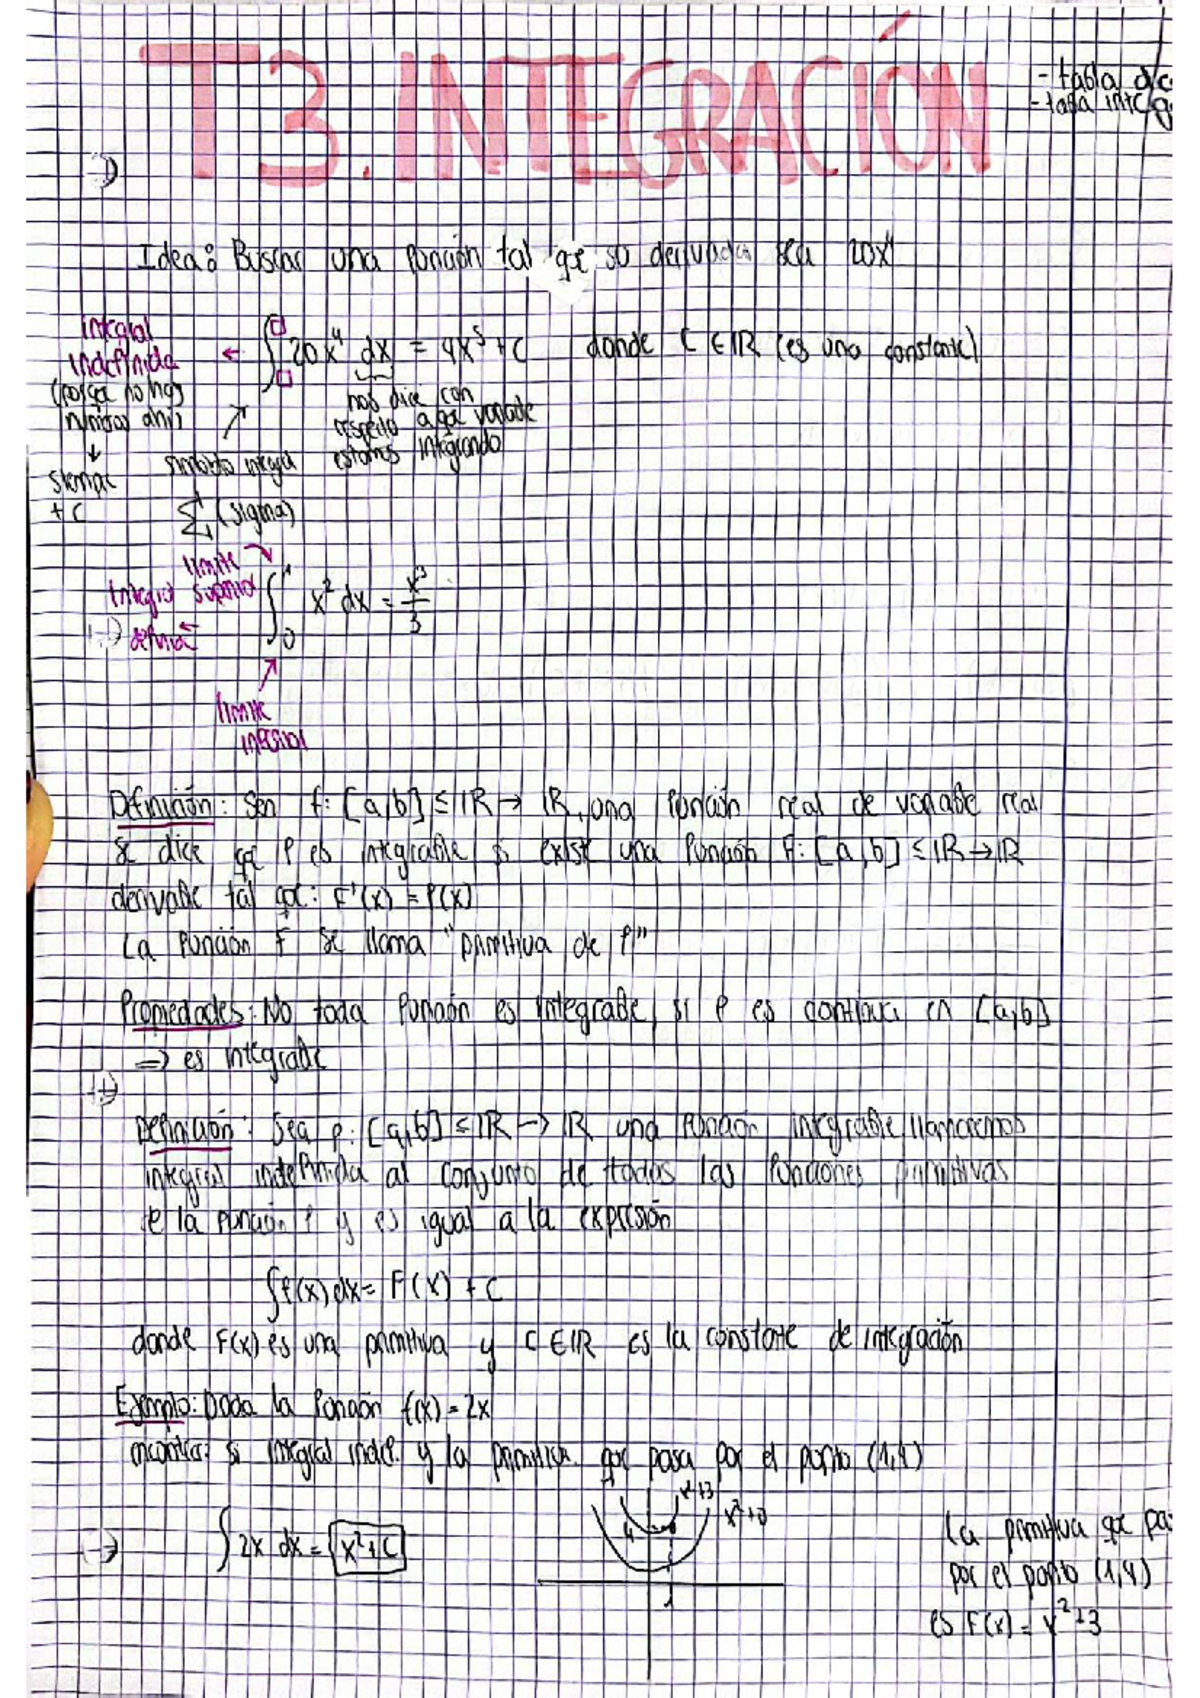 T3. INTEGRACIÓN
- tabla de
- tabla integ
Idea: Buscar una función tal qe su derivada sea 20x⁴
integral
indefinida
(porqe no hay
números ahí)
↓
siempre
+ C
← ∫ 20x⁴ dx = 4x⁵ + C donde C ∈ IR (es una constante)
nos dice con
respecto a qe variable
estamos integrando
símbolo integral
∑ (sigma)
limite
superior
Integral
definida
∫₀¹ x² dx = x³/3
limite
inferior
Definición: Sea f: [a,b] ≤ IR → IR, una función real de variable real
se dice qe f es integrable si existe una función F: [a,b] ≤ IR → IR
derivable tal qe: F'(x) = f(x)
La función F se llama "primitiva de f"
Propiedades: No toda función es integrable, si f es continua en [a,b]
=> es integrable
Definición: Sea f: [a,b] ≤ IR → IR una función integrable, llamaremos
integral indefinida al conjunto de todas las funciones primitivas
de la función f y es igual a la expresión
∫f(x) dx = F(x) + C
donde F(x) es una primitiva y C ∈ IR es la constante de integración
Ejemplo: Dada la función f(x) = 2x
encontrar si integral indef. y la primitiva qe pasa por el punto (1,4)
∫ 2x dx = x² + C
x²+3
x²+0
4
1
La primitiva qe pa
por el punto (1,4)
es F(x) = x²+3